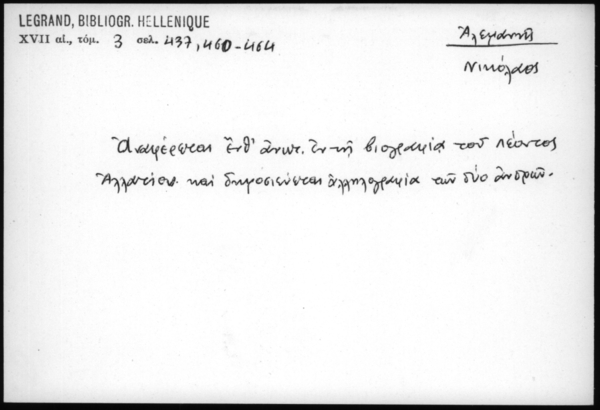 LEGRAND, BIBLIOGR. HELLENIQUE
XVII αἰ., τόμ. 3 σελ. 437, 460-464
Ἀλεμάννης
Νικόλαος
Ἀναφέρεται ἔνθ' ἀνωτ. ἐν τῇ βιογραφίᾳ τοῦ Λέοντος
Ἀλλατίου καὶ δημοσιεύεται ἀλληλογραφία τῶν δύο ἀνδρῶν.